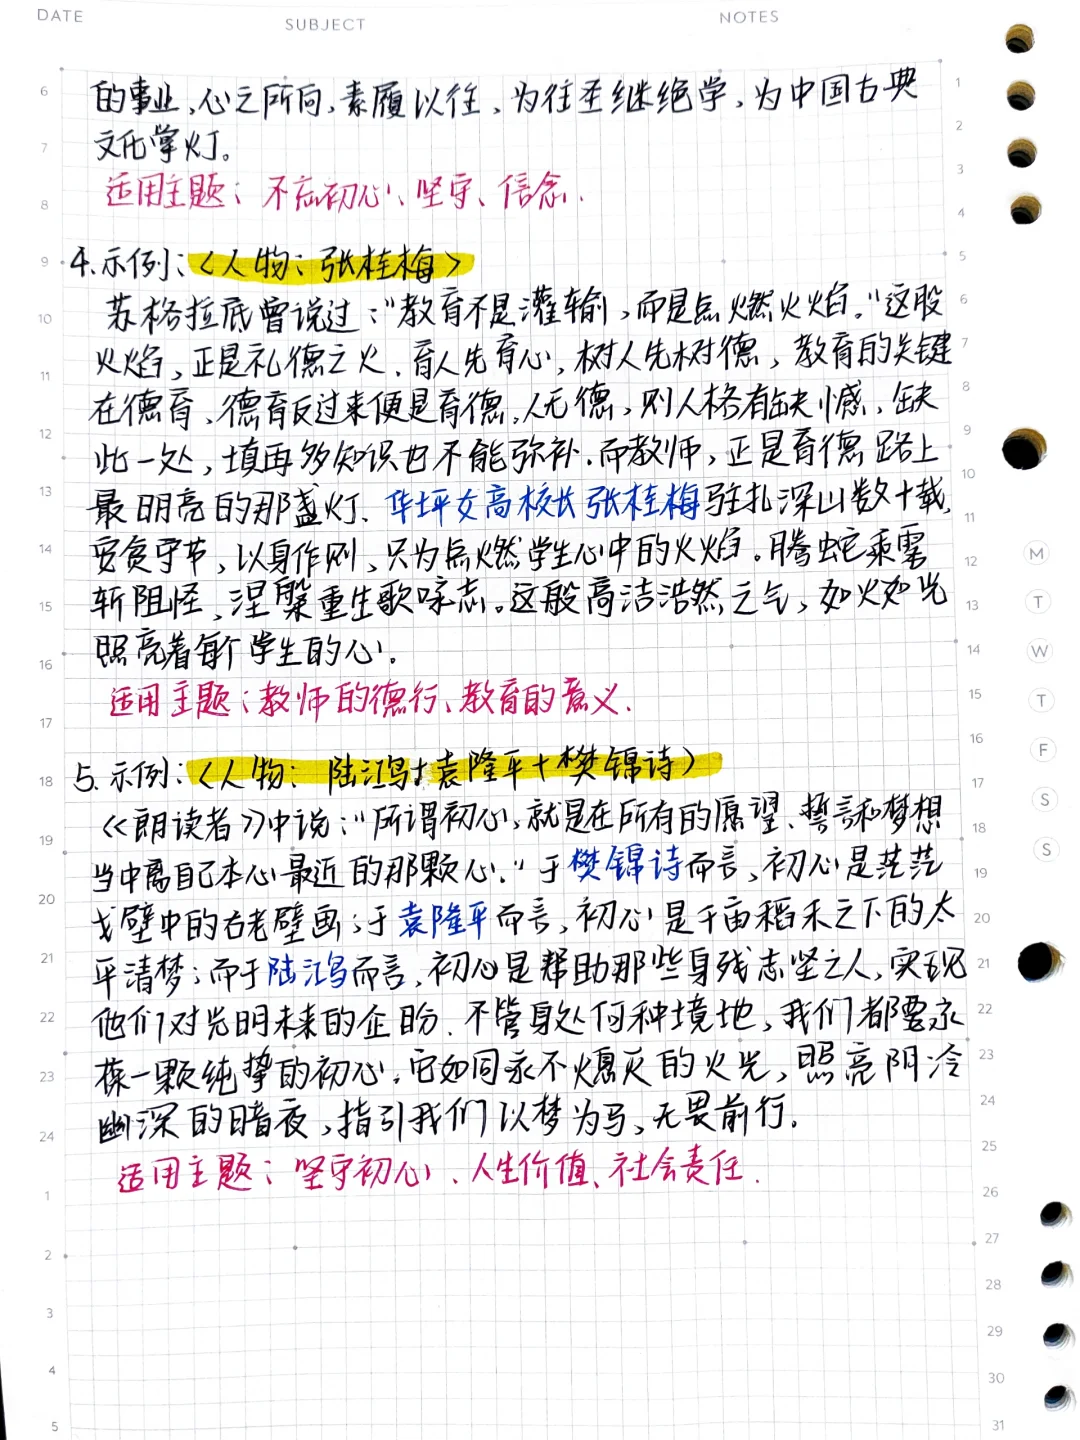 DATE
SUBJECT
NOTES
的事业,心之所向,素履以往,为往圣继绝学,为中国古典
文化掌灯。
适用主题:不忘初心、坚守、信念.
4.示例:<人物:张桂梅>
苏格拉底曾说过:“教育不是灌输,而是点燃火焰.”这股
火焰,正是礼德之火.育人先育心,树人先树德,教育的关键
在德育,德育反过来便是育德,人无德,则人格有缺憾,缺
此一处,填再多知识也不能弥补.而教师,正是育德路上
最明亮的那盏灯、华坪女高校长张桂梅驻扎深山数十载,
安贫守节,以身作则,只为点燃学生心中的火焰。腾蛇乘雾
斩阻怪,涅槃重生歌咏志。这般高洁浩然之气,如火如光
照亮着每个学生的心.
适用主题:教师的德行、教育的意义.
5.示例:<人物:陆鸿+袁隆平+樊锦诗>
《朗读者》中说:“所谓初心,就是在所有的愿望、誓言和梦想
当中离自己本心最近的那颗心.”于樊锦诗而言,初心是茫茫
戈壁中的古老壁画;于袁隆平而言,初心是千亩稻禾之下的太
平清梦;而于陆鸿而言,初心是帮助那些身残志坚之人,实现
他们对光明未来的企盼.不管身处何种境地,我们都要永
葆一颗纯挚的初心.它如同永不熄灭的火光,照亮阴冷
幽深的暗夜,指引我们以梦为马,无畏前行.
适用主题:坚守初心、人生价值、社会责任.
6
7
8
9
10
11
12
13
14
15
16
17
18
19
20
21
22
23
24
1
2
3
4
5
1
2
3
4
5
6
7
8
9
10
11
12
13
14
15
16
17
18
19
20
21
22
23
24
25
26
27
28
29
30
31
M
T
W
T
F
S
S